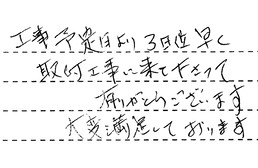 工事予定日より3日位早く
取付工事に来て下さって
ありがとうございます
大変満足しております